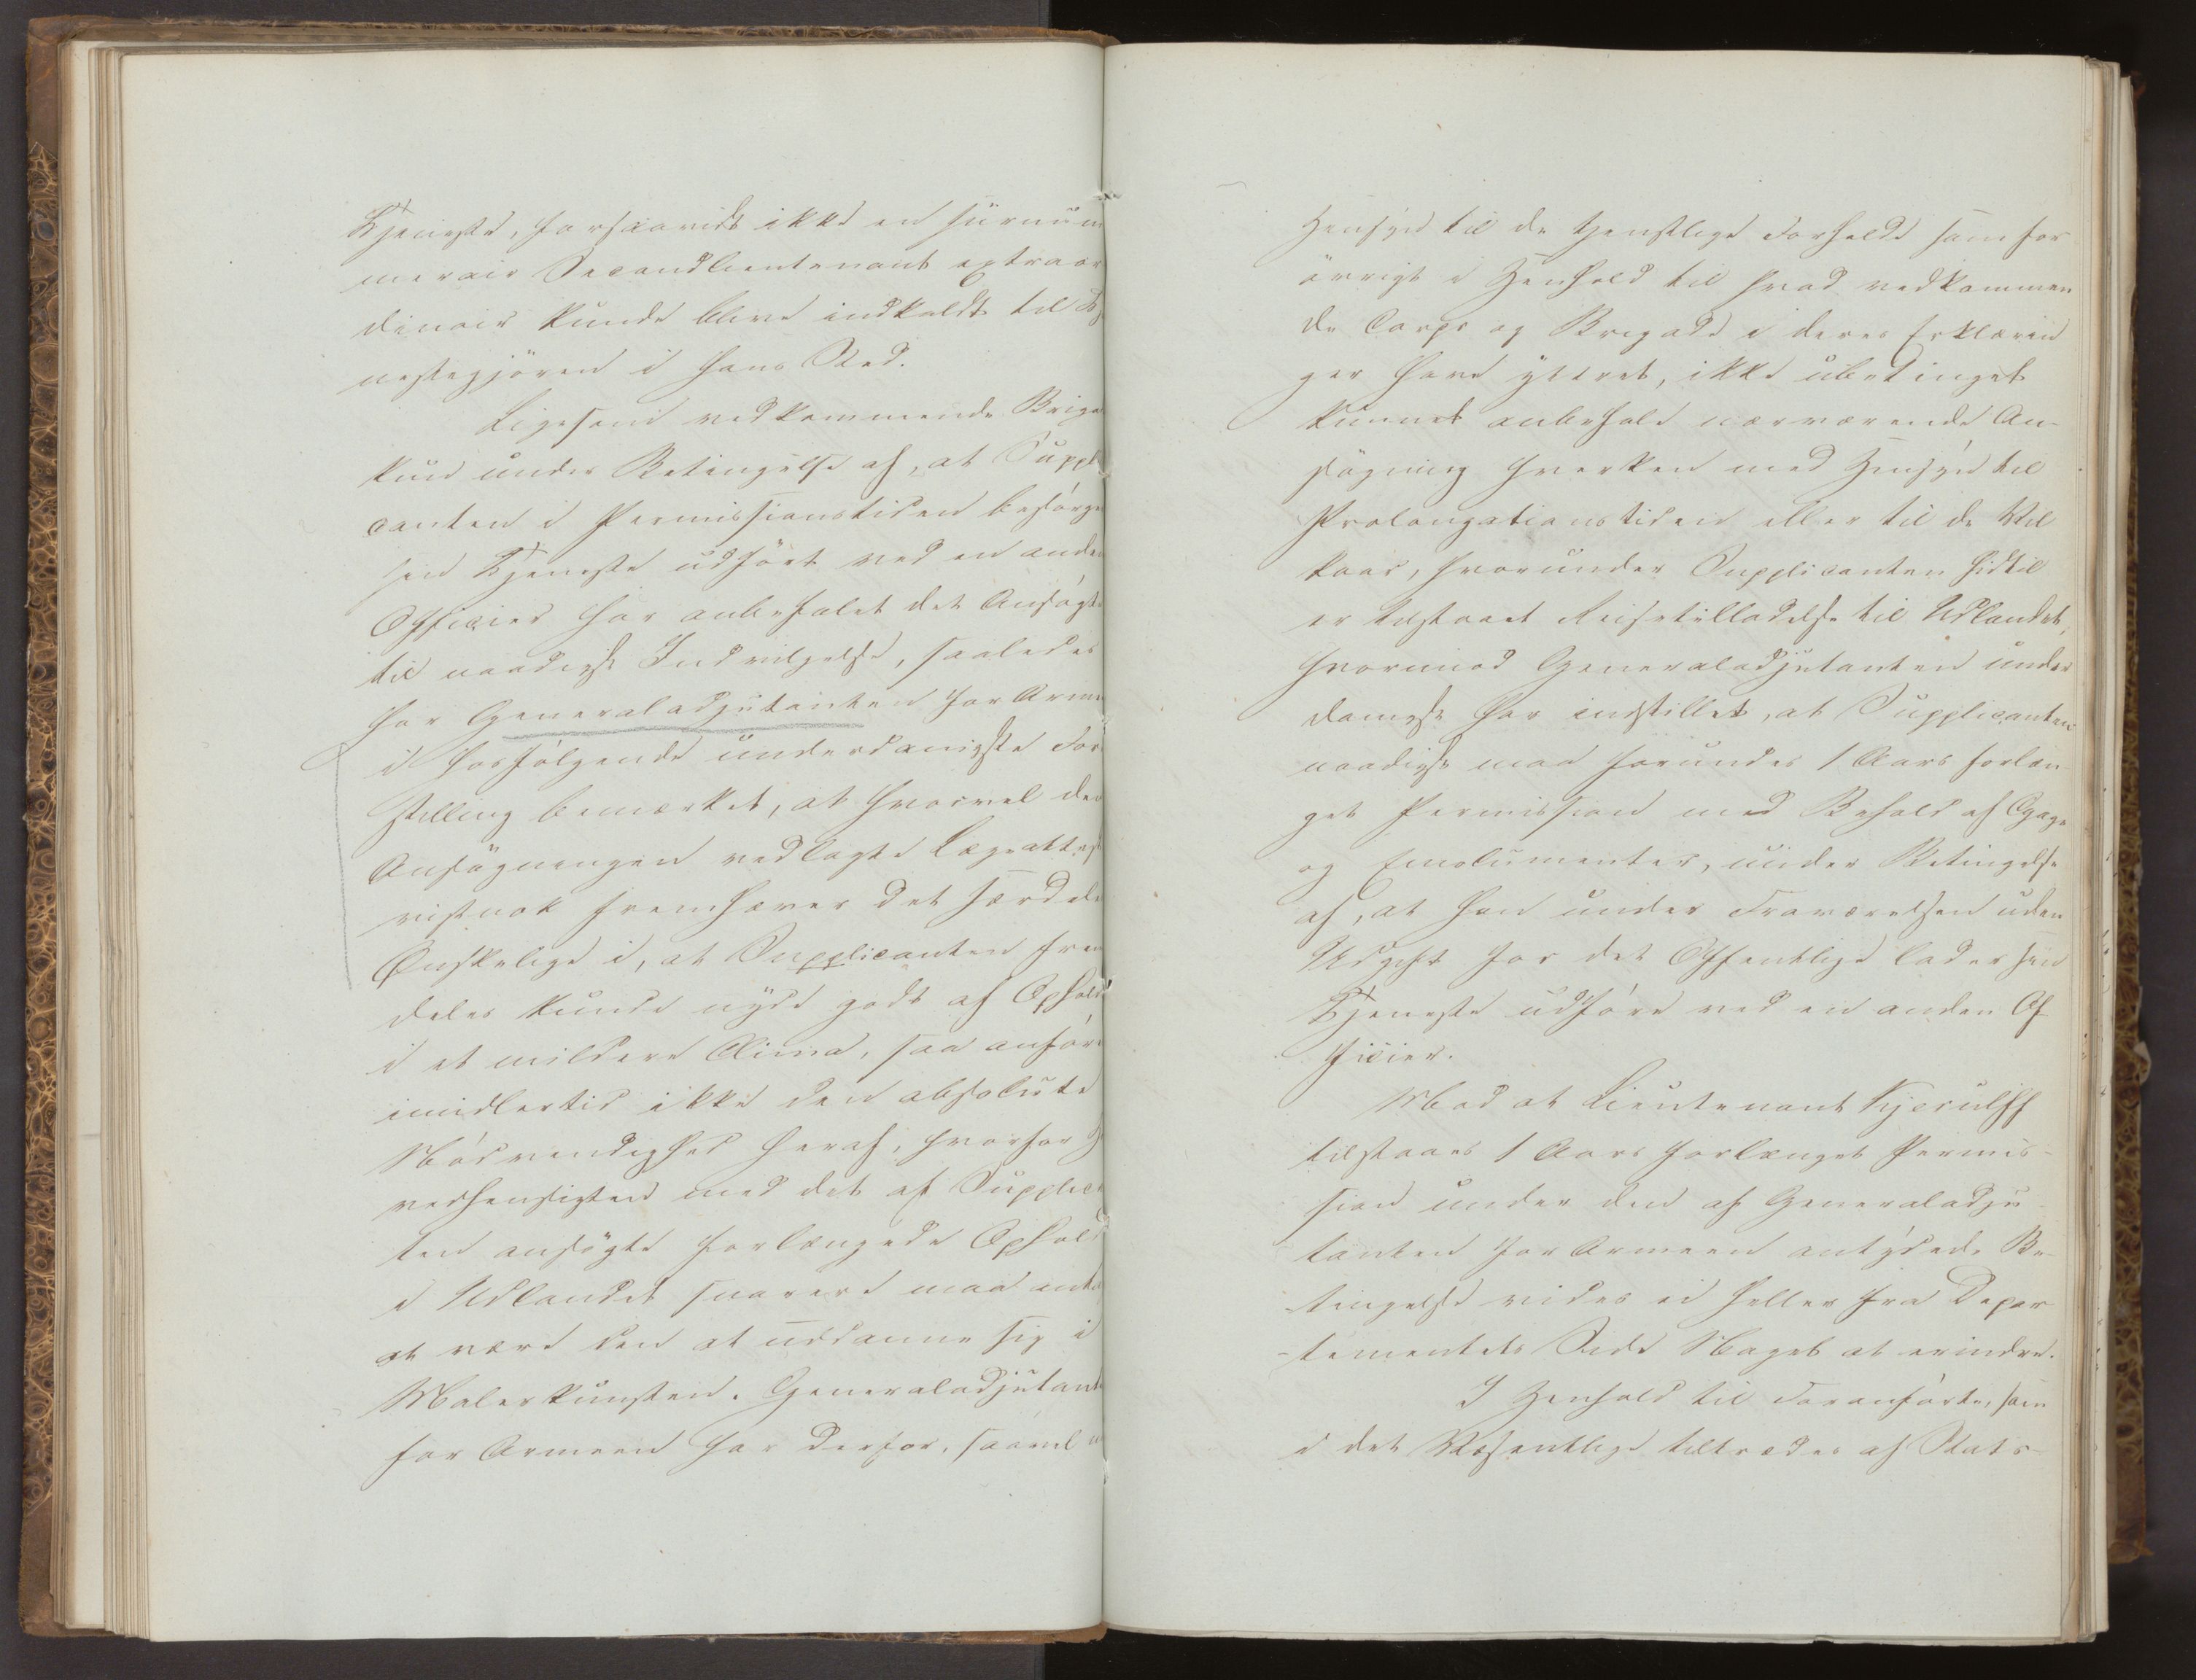 Tjeneste, forsaavidt ikke en surnum
merair Secondlieutenant extraor
dinair kunde blive indkaldt til Tj
nestegjøren i hans Sted.
Ligesom vedkommende Briga
kun under Betingelse af, at Suppli
canten i Permissionstiden besørger
sin Tjeneste udført ved en anden
Officier har anbefalet det Ansøgte
til naadigst Indvilgelse, saaledes
har Generaladjutanten for Arme
i hosfølgende underdanigste Fore
stilling bemærket, at hvorvel den
Ansøgningen vedlagte Lægeattest
vistnok fremhæver det særdeles
Ønskelige i, at Supplicanten frem
deles kunde nyde godt af Ophold
i et mildere Clima, saa anføre
imidlertid ikke den absolute
Nødvendighed heraf, hvorfor H
vedhensigten med det af Supplica
ten ansøgte forlængede Ophold
i Udlandet snarere maa anta
at være den at uddanne sig i
Malerkunsten. Generaladjutant
for Armeen har derfor, saavel m
Hensyn til de tjenstlige Forholde som for
øvrigt i Henhold til hvad vedkommen
de Corps og Brigade i deres Erklærin
ger have yttret, ikke ubetinget
kunnet anbefale nærværende An-
søgning hverken med Hensyn til
Prolongationstiden eller til de Vil
kaar, hvorunder Supplicanten hidtil
er tilstaaet Reisetilladelse til Udlandet,
hvorimod Generaladjutanten under
danigst har indstillet, at Supplicanten
naadigst maa forundes 1 Aars forlæn
get Permission med Behold af Gage
og Emolumenter, under Betingelse
af, at han under Fraværelsen uden
Udgift for det Offentlige lader sin
Tjeneste udføre ved en anden Of
ficier.
Mod at Lieutenant Kjerulff
tilstaaes 1 Aars forlænget Permis-
sion under den af Generaladju
tanten for Armeen antydede Be
tingelse vides ei heller fra Depar
-tementets Side Noget at erindre.
I Henhold til Foranførte, som
i det Væsentlige tiltrædes af Stats-